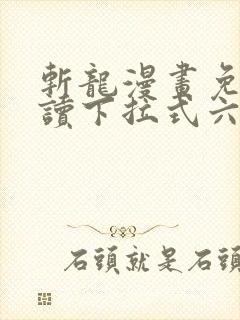 斬龍漫畫免
讀下拉式六
石頭就是石頭